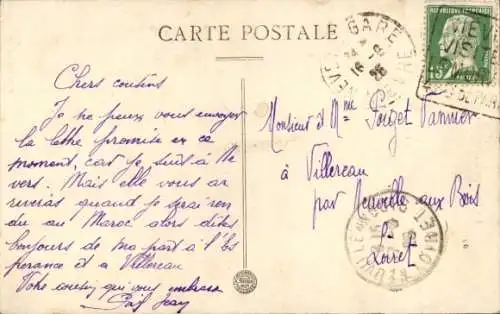 CARTE POSTALE
Chers cousins
Je ne peux vous envoyer
la lettre promise en ce
moment, car je suis à Ne
vers. Mais elle vous ar
rivera quand je serai ren
du au Maroc alors dites
bonjours de ma part à l'Es
perance et a Villereau
Votre cousin qui vous embrasse
Jean
Monsieur et Mme Poiget Vannier
à Villereau
par Neuville aux Bois
Loiret
GARE
16
26
RÉPUBLIQUE FRANÇAISE
15
LOIRET